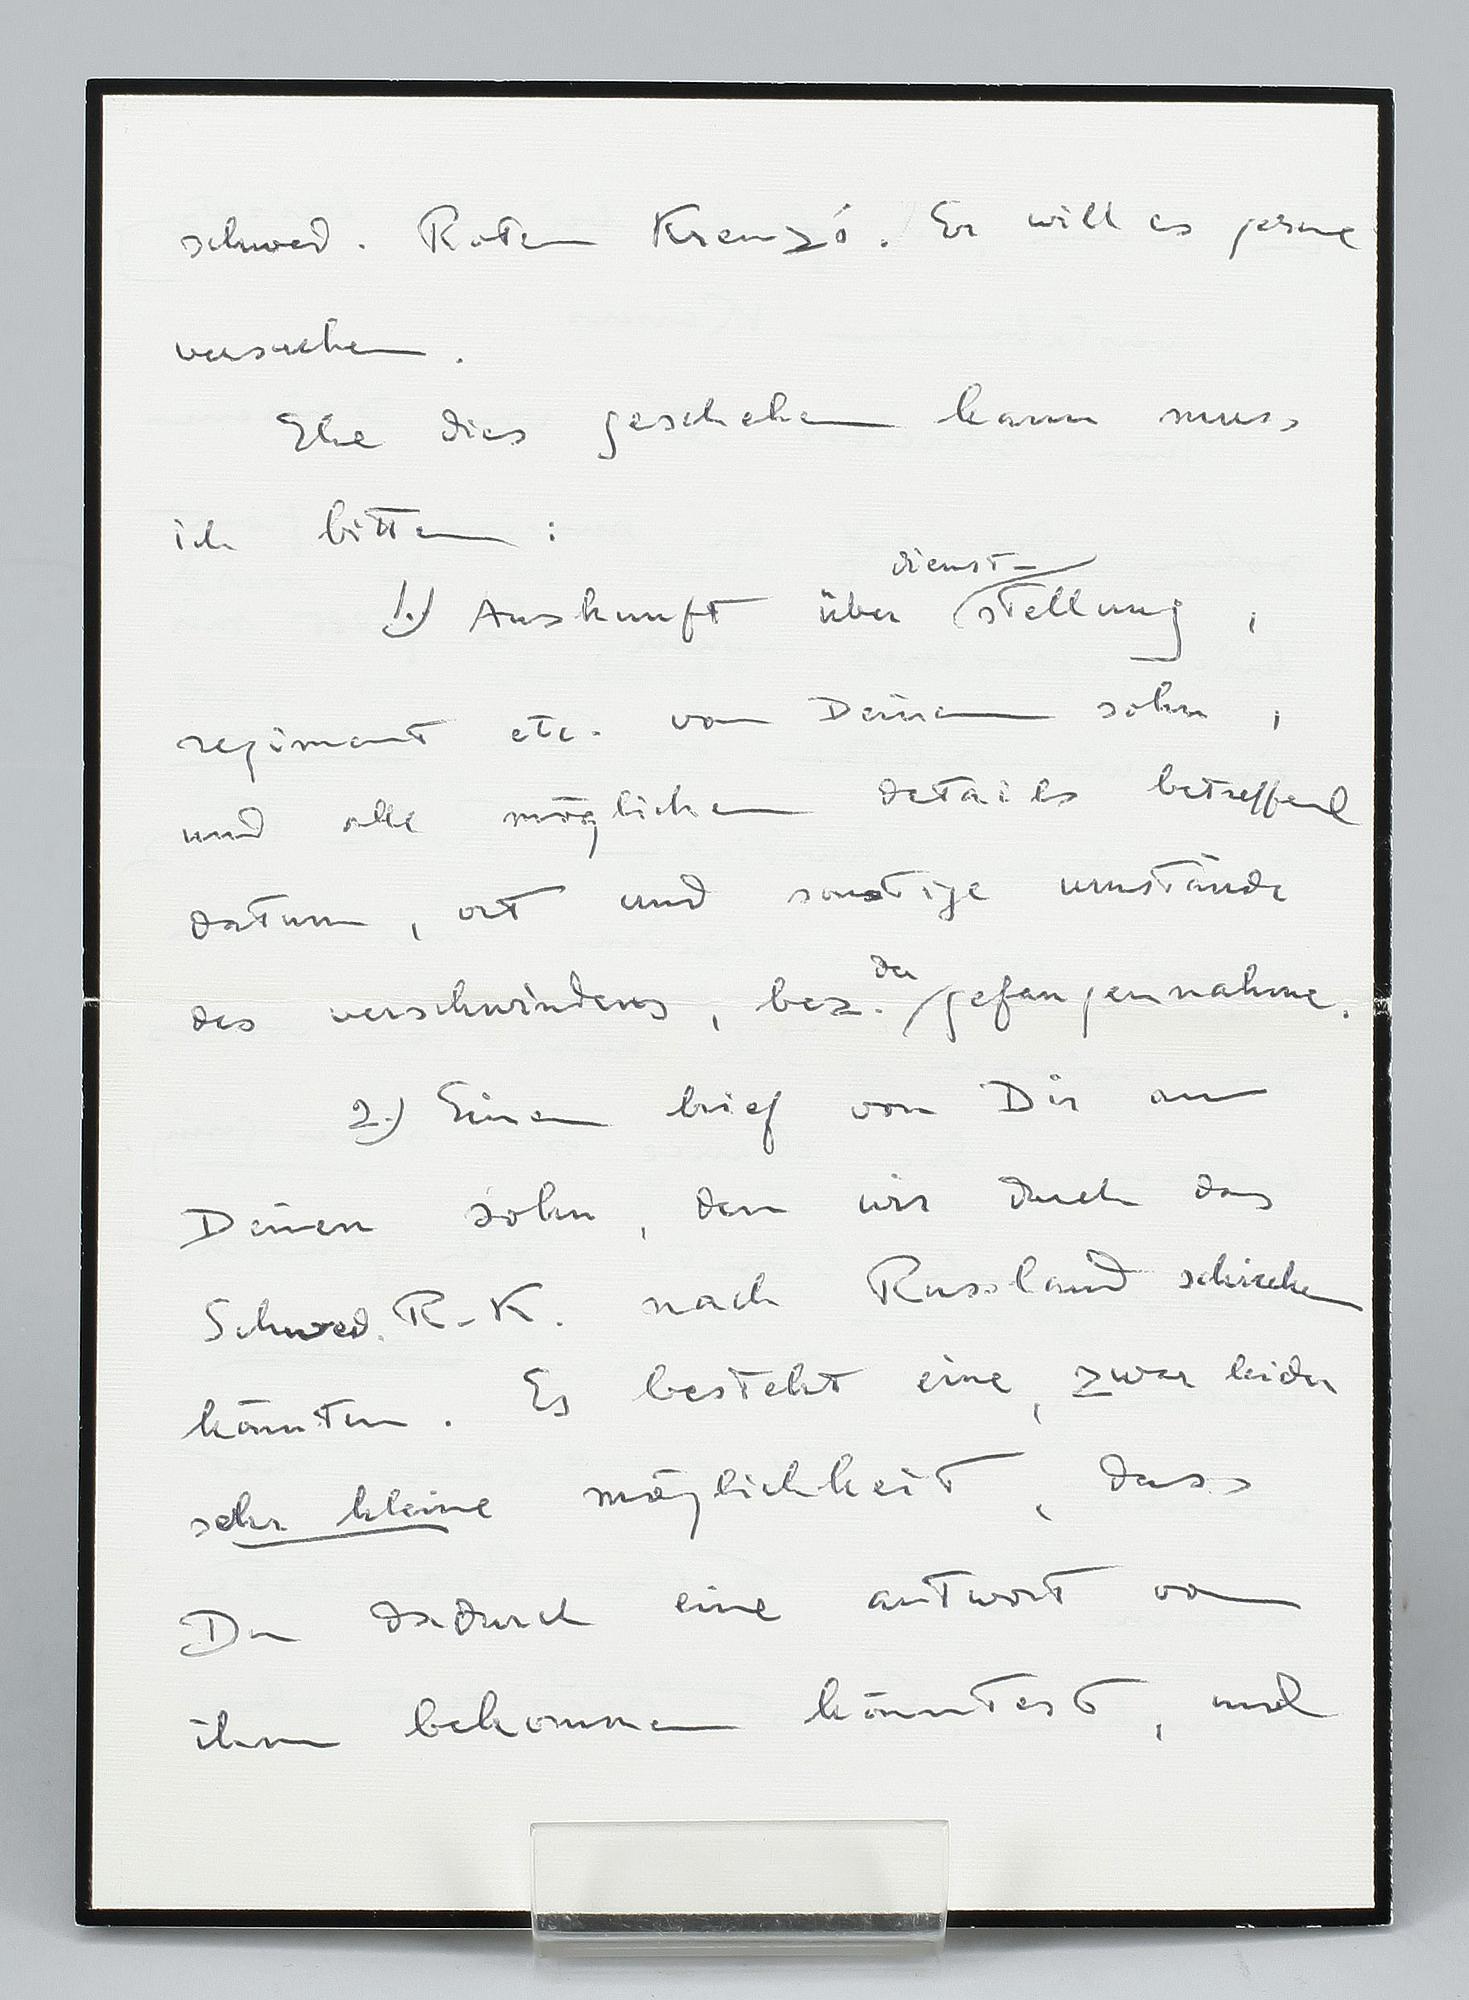 schwed. Roten Kreuzó. Er will es gerne
versuchen.
Ehe dies geschehen kann muss
ich bitten:
dienst-
1.) Auskunft über stellung,
regiment etc. von Deinem sohn,
und alle möglichen details betreffend
datum, ort und sonstige umstände
der
des verschwindens, bez. gefangennahme.
2.) Einen brief von Dir an
Deinen sohn, den wir durch das
Schwed. R.K. nach Russland schicken
könnten. Es besteht eine, zwar leider
sehr kleine möglichkeit, dass
Du dadurch eine antwort von
ihm bekommen könntest, und